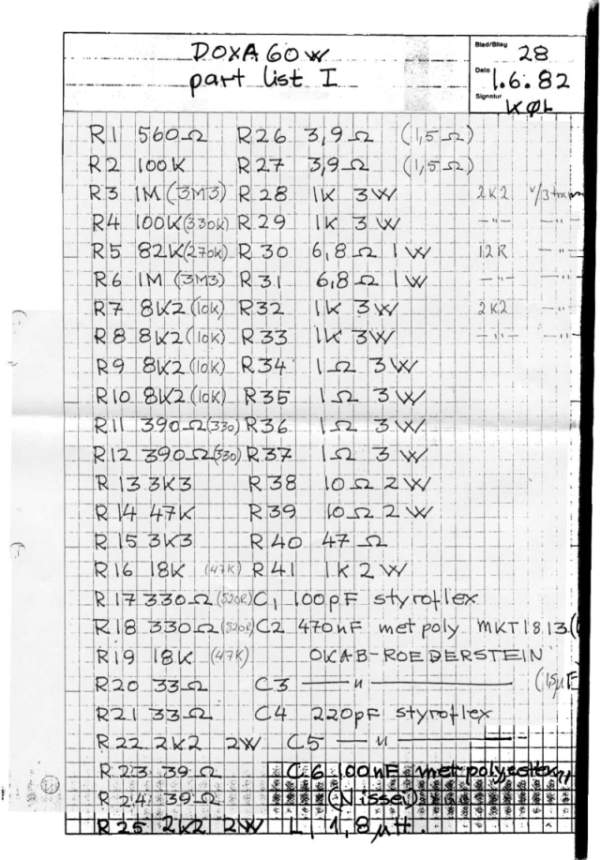 DOXA 60W
part list I
Blad/Blaag
28
Dato
1.6.82
Signatur
KØL
R1 560Ω R26 3,9Ω (1,5Ω)
R2 100K R27 3,9Ω (1,5Ω)
R3 1M (3M3) R28 1K 3W 2K2
R4 100K (330K) R29 1K 3W —"— —"
R5 82K (270K) R30 6,8Ω 1W 12R —"
R6 1M (3M3) R31 6,8Ω 1W —"— —"
R7 8K2 (10K) R32 1K 3W 2K2 —"
R8 8K2 (10K) R33 1K 3W —"— —"
R9 8K2 (10K) R34 1Ω 3W
R10 8K2 (10K) R35 1Ω 3W
R11 390Ω (330) R36 1Ω 3W
R12 390Ω (330) R37 1Ω 3W
R13 3K3 R38 10Ω 2W
R14 47K R39 10Ω 2W
R15 3K3 R40 47Ω
R16 18K (47K) R41 1K 2W
R17 330Ω (520R) C1 100pF styroflex
R18 330Ω (520R) C2 470nF met poly MKT1813 (
R19 18K (47K) OKAB-ROEDERSTEIN
R20 33Ω C3 —"— (15µF
R21 33Ω C4 220pF styroflex
R22 2K2 2W C5 —"—
R23 39Ω C6 100nF met polyester
R24 39Ω (Nissei)
R25 2K2 2W L1 1,8µH.